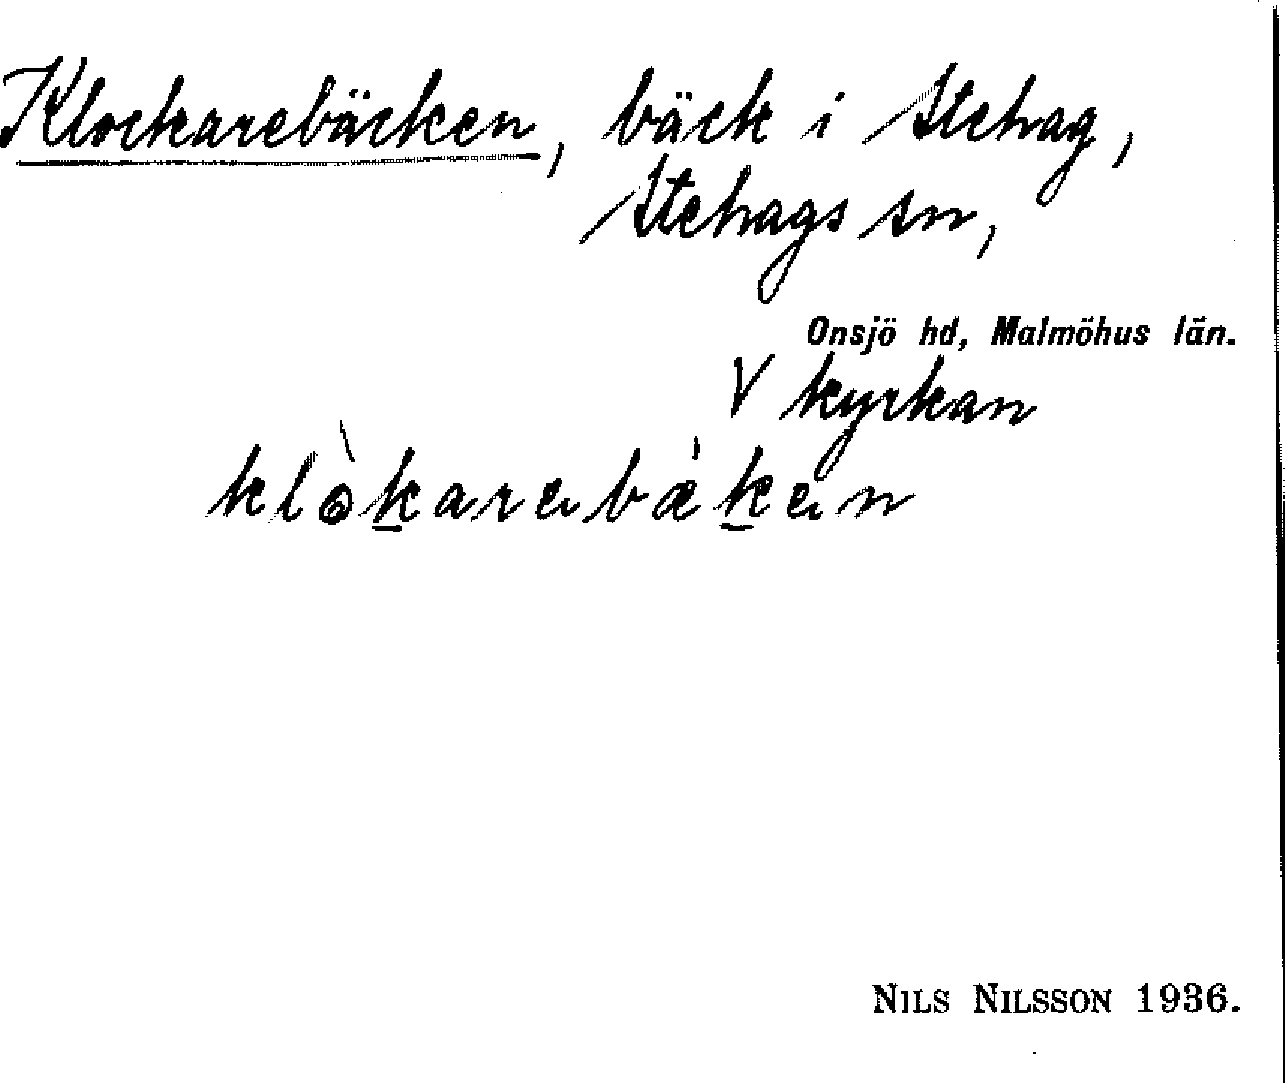 Klockarebäcken, bäck i Stehag,
Stehags sn,
Onsjö hd, Malmöhus län.
V kyrkan
klòkarebä́ken
NILS NILSSON 1936.